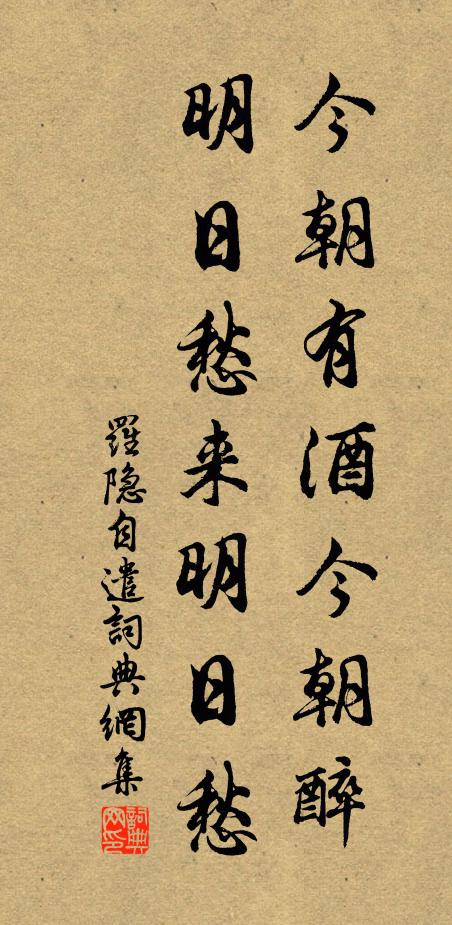 今朝有酒今朝醉
明日愁来明日愁
羅隐自遣詞典網集
詞典
网印